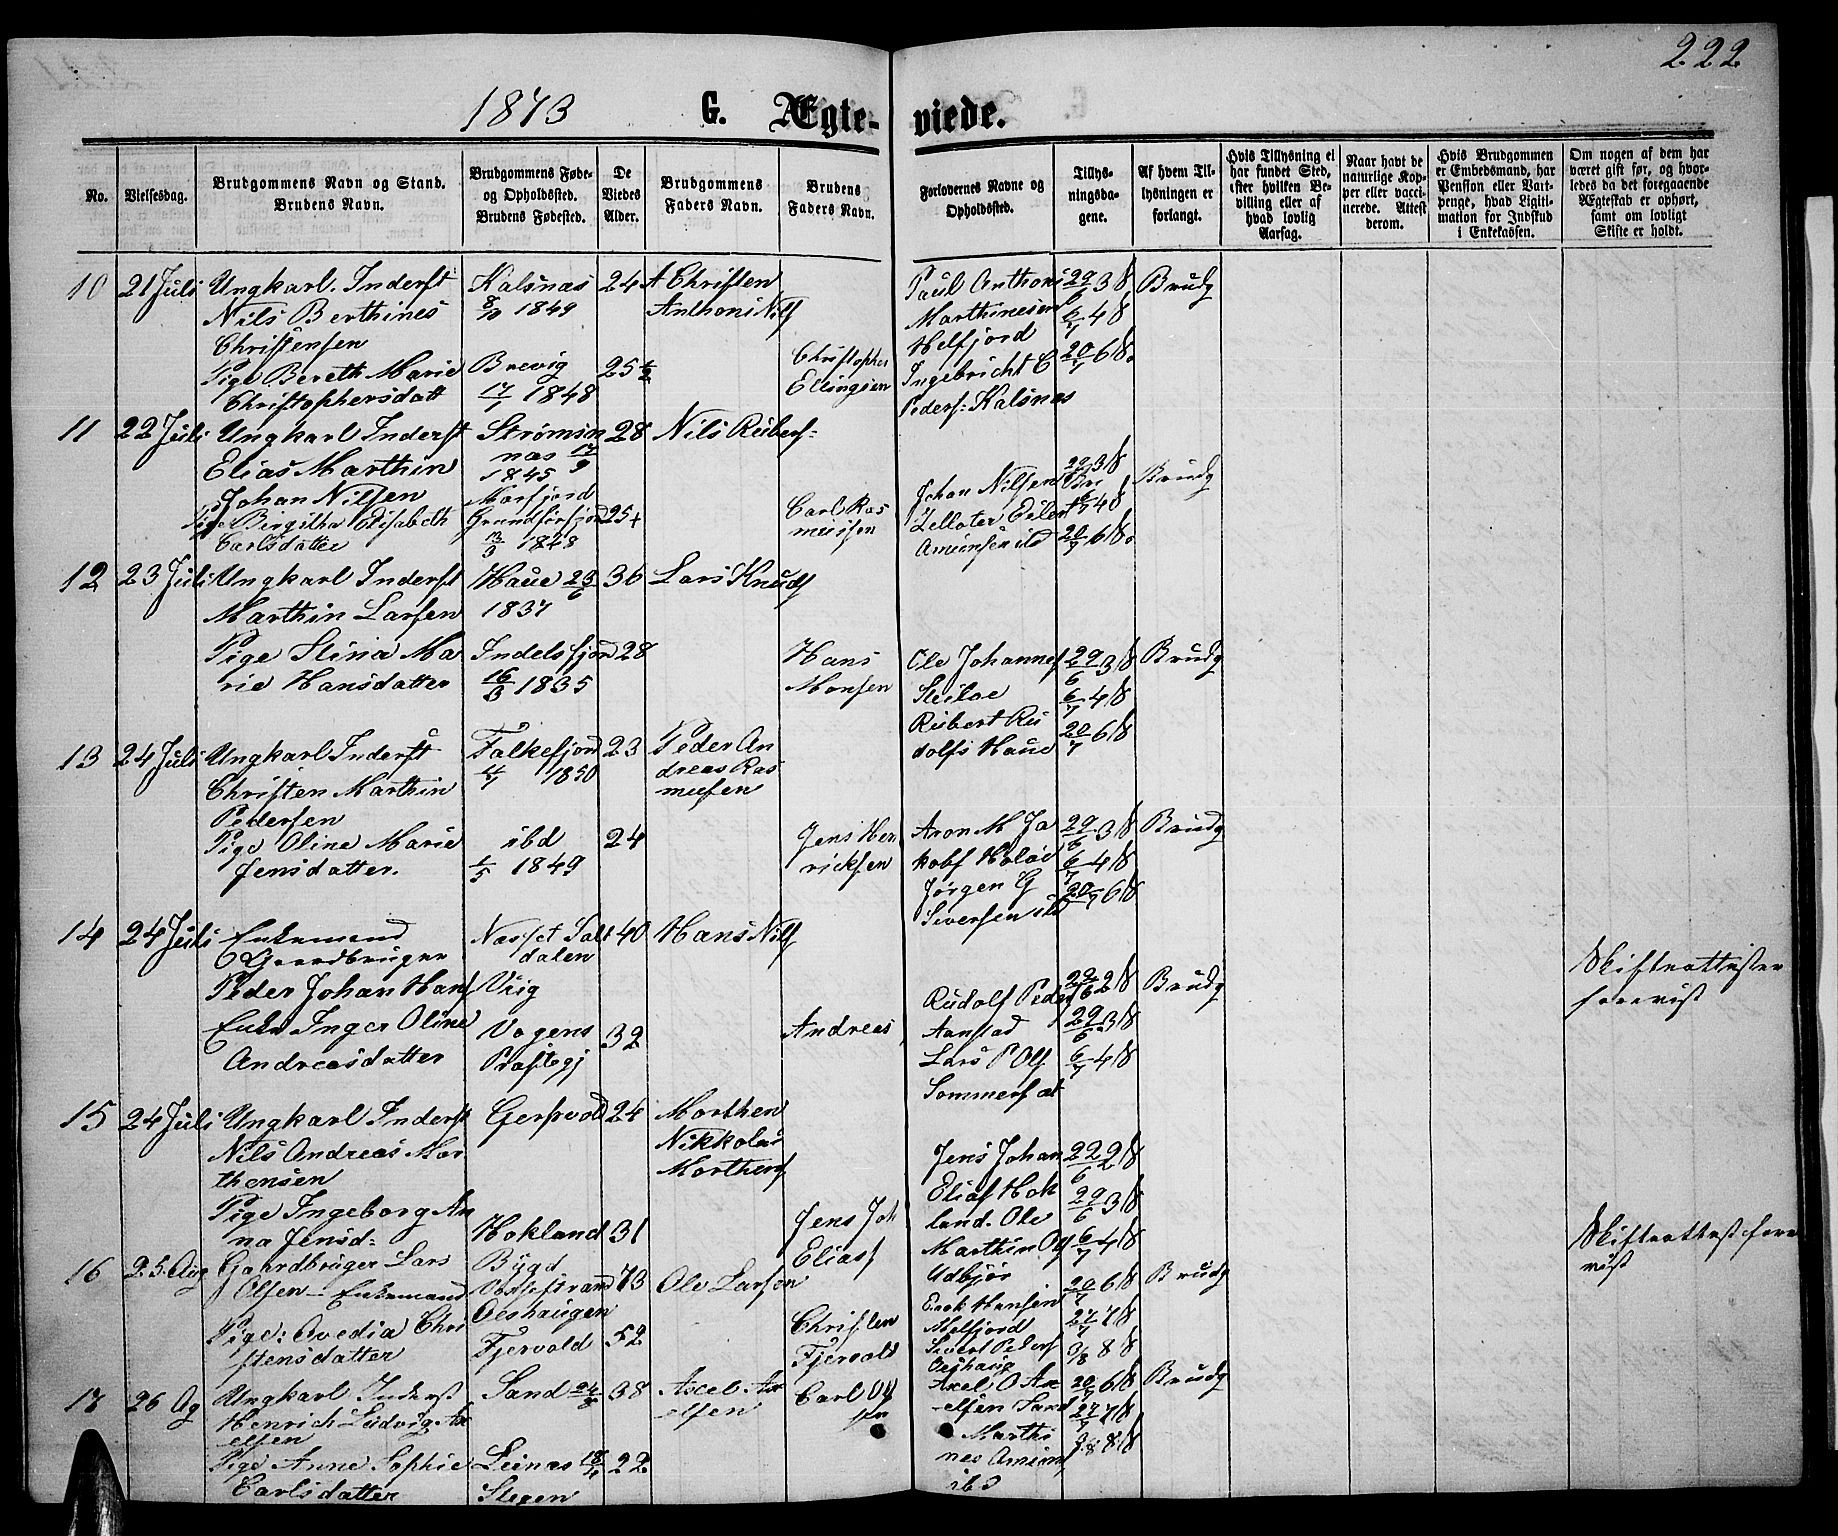 222
1873 G. Ægte- viede.
No.
Vielsesdag.
Brudgommens Navn og Stand.
Brudens Navn.
Brudgommens Føde-
og Opholdssted.
Brudens Fødested.
De
Viedes
Alder.
Brudgommens
Faders Navn.
Brudens
Faders Navn.
Forlovernes Navne og
Opholdssted.
Tillys-
ningsda-
gene.
Af hvem Til-
lysningen er
forlangt.
Hvis Tillysning ei
har fundet Sted,
efter hvilken Be-
villing eller af
hvad lovlig
Aarsag.
Naar havt de
naturlige Kop-
per eller vacci-
nerede. Attest
derom.
Hvis Brudgommen
er Embedsmand, har
Pension eller Vart-
penge, hvad Ligiti-
mation for Indskud
i Enkekassen.
Om nogen af dem har
været gift før, og hvor-
ledes da det foregaaende
Ægteskab er ophørt,
samt om lovligt
Skifte er holdt.
10
21 Juli
Ungkarl. Inderst
Nils Berthines
Christensen
Pige Bereth Marie
Christophersdatt
Kalsnas
8/10 1849
Brevig
17/1 1848
24
25 1/2
Christen
Anthoni Nils
Christopher
Ellingsen
Paul Anthoni
Marthinesen
Helfjord
Ingebricht C
Peders: Kalsnas
29/6 3 S
6/7 4 S
20/7 6 S.
Brudg
11
22 Juli
Ungkarl Inderst
Elias Marthin
Johan Nilsen
Pige Birgitha Elisabeth
Carlsdatter
Strømsn
nas 17/9
1845
Morfjord
Grundforfjord
13/3 1848
28
25+
Nils Rubers:
Carl Ras
mussen
Johan Nilsen
Eilert
Amunsen ibd
6/7 4 S
20/7 6 S.
Brudg
12
23 Juli
Ungkarl Inderst
Marthin Larsen
Pige Stina Ma
rie Hansdatter
Haue 23/6
1837
Indelsfjord
16/3 1835
36
28
Lars Knuds
Hans
Monsen
Ole Johannes
Rubert Ru
dolfs Haue
29/6 3 S
6/7 4 S
20/7 6 S
Brudg
13
24 Juli
Ungkarl Inderst
Christen Marthin
Pedersen
Pige Oline Marie
Jensdatter.
Falkefjord
1850
ibd
1/5 1849
23
24
Peder An
dreas Ras
mussen
Jens Hen
ricksen
Aron M Ja
kobs Holoe
Jørgen G
Siversen ibd
29/6 3 S
6/7 4 S
20/7 6 S
Brudg
14
24 Juli
Enkemand
Gaardbruger
Peder Johan Hans
Enke Inger Oline
Andreasdatter
Nasset Salt
dalen
Viig
Vogens
Præstegj
40
32
Hans Nils
Andreas
Rudolf Peders
Aanstad
Lars P Ols
Sommersæt
22/6 2 S
29/6 3 S
6/7 4 S
Brudg
Skifteattester
forevist
15
24 Juli
Ungkarl Inderst
Nils Andreas Mor
thensen
Pige Ingeborg An
na Jensd:
Gersvold
Hokland
24
31
Morthen
Nikkolai
Morthens
Jens Joh
Elias
Jens Johan
Elias Hok
land. Ole
Marthin Ols
Udbjør
22/6 2 S
29/6 3 S
6/7 4 S
16
25. Aug
Gaardbruger Lars
Olsen - Enkemand
Pige: Avedia Chri
stensdatter
Bygd
Oeshaugen
Fjervold
73
52
Ole Larsen
Christen
Fjervold
Enok Hansen
Melfjord
Sivert Peders
Oeshaug
20/7 6 S
27/7 7 S
3/8 8 S
Brudg
Skifteattest fore
vist
17
26 Ag
Ungkarl Inderst
Henrich Ludvig Ax
elsen
Pige Anne Sophie
Carlsdatter
Sand
Leinas
Stegen
38
22
Axcel Ax
elsen
Carl Ol
sen
Axel O Ax
elsen Sand
Marthi
nes Amuns
ibd
20/7 6 S
27/7 7 S
3/8 8 S
Brudg